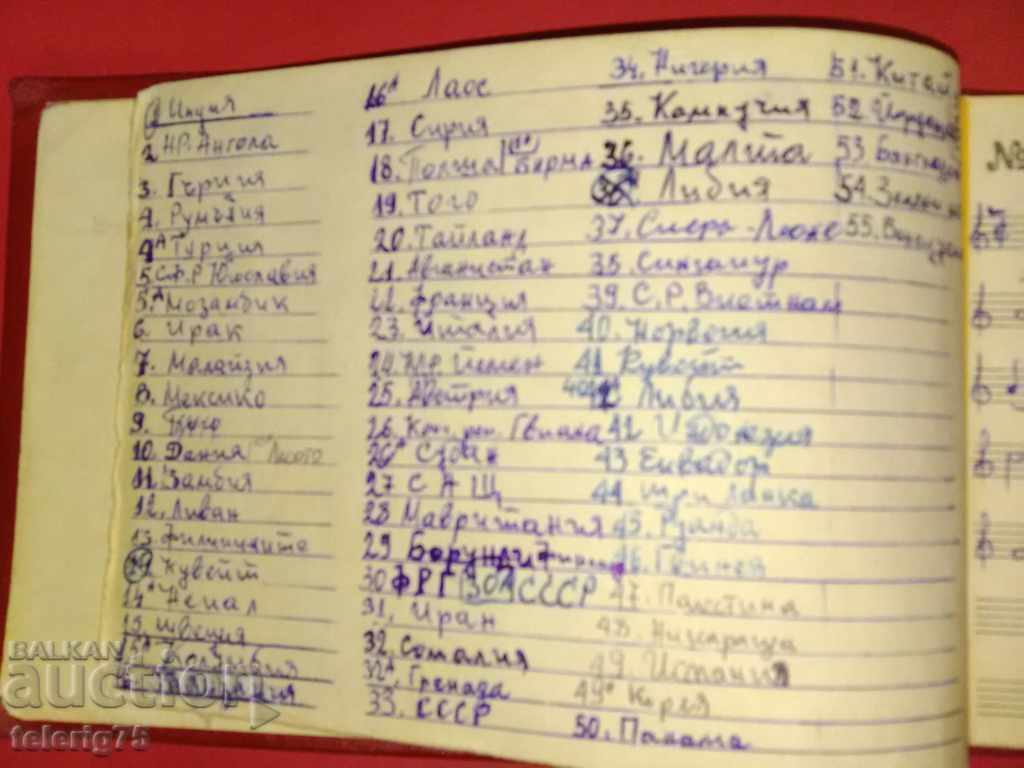 1 Индия
2 НР. Ангола
3. Гърция
4. Румъния
4А Турция
5. С.Ф.Р Югославия
5.А Мозамбик
6. Ирак
7. Малайзия
8. Мексико
9.
10. Дания Лаого
11. Замбия
12. Ливан
13. Филипините
14. Кувейт
14А Непал
15. Швеция
16А Лаос
17. Сирия
18. Полша Бирма
19. Того
20. Тайланд
21. Авганистан
22. Франция
23. Италия
24. Йемен
25. Австрия
26. Гвиана
26А Судан
27 С А Щ
28 Мавритания
29 Борунди
30 ФРГ 30А СССР
31. Иран
32. Сомалия
32А. Гренада
33. СССР
34. Нигерия
35. Кампучия
36. Малта
Либия
37. Сиера-Леоне
38. Сингапур
39. С.Р. Виетнам
40. Норвегия
41. Кувейт
Либия
42 Идонезия
43 Еквадор
44 Шри Ланка
45. Руанда
46. Гвинея
47. Палестина
48. Никарагуа
49. Испания
49А Корея
50. Панама
51. Китай
52.
53
54. Зелени
55.
№
BALKAN
auction
telerig75